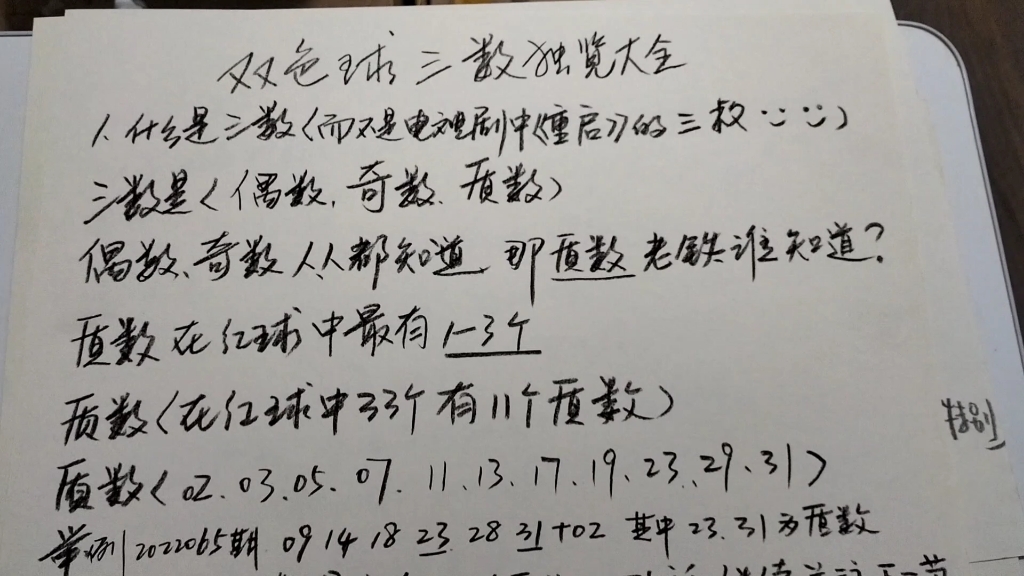 双色球三数独览大全
1、什么是三数(而不是电视剧中《重启》的三叔
三数是(偶数、奇数、质数)
偶数、奇数人人都知道、那质数老铁谁知道?
质数在红球中最有1-3个
质数(在红球中33个有11个质数)
特别
质数(02、03、05、07、11、13、17、19、23、29、31)
举例 2022065期 09 14 18 23 28 31+02 其中23.31为质数